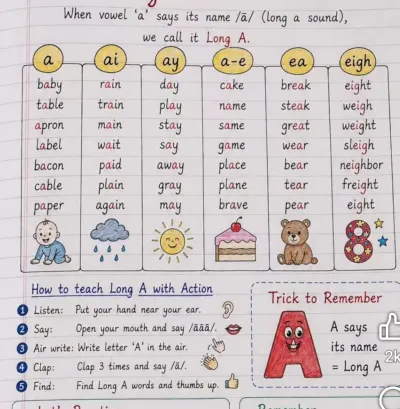 When vowel 'a' says its name /ā/ (long a sound),
we call it Long A.
a ai ay a-e ea eigh
baby rain day cake break eight
table train play name steak weigh
apron main stay same great weight
label wait say game wear sleigh
bacon paid away place bear neighbor
cable plain gray plane tear freight
paper again may brave pear eight
8
How to teach Long A with Action
1 Listen: Put your hand near your ear.
2 Say: Open your mouth and say /āāā/.
3 Air write: Write letter 'A' in the air.
4 Clap: Clap 3 times and say /ā/.
5 Find: Find Long A words and thumbs up.
Trick to Remember
A
A says
its name
= Long A
2k